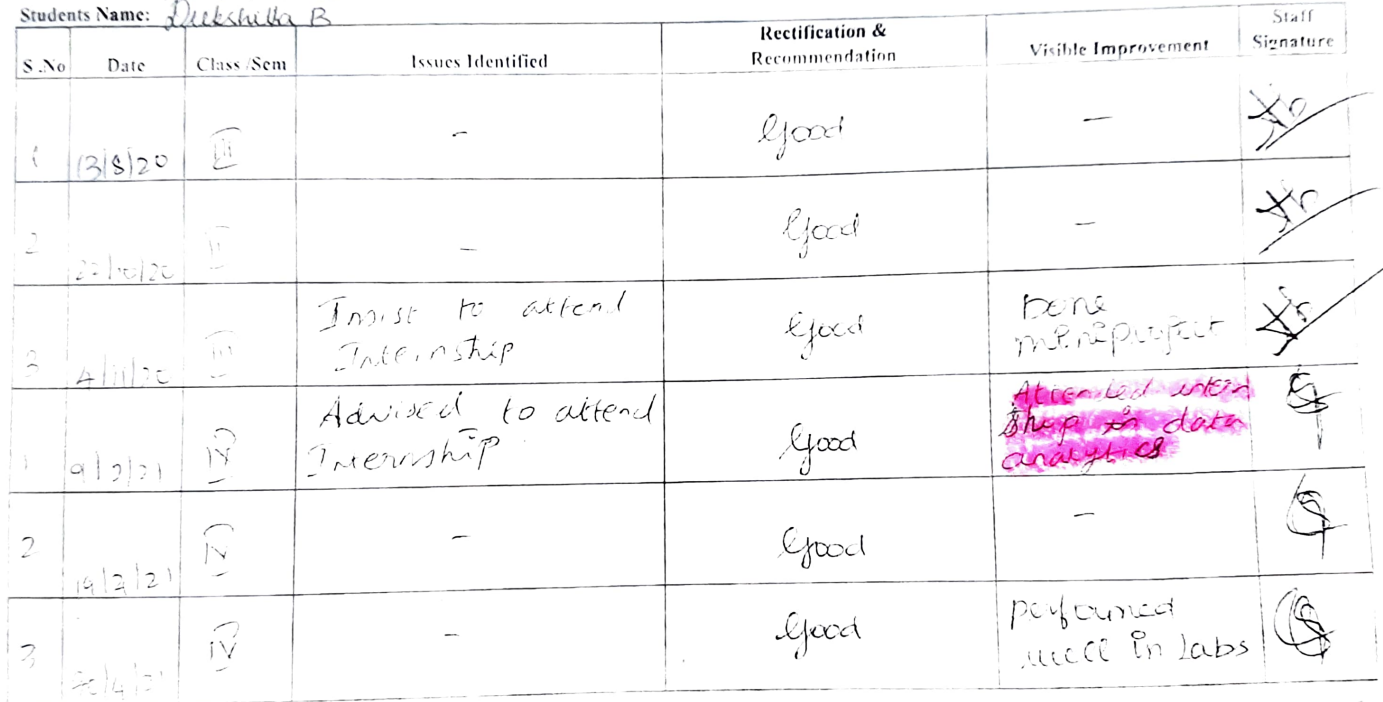 Students Name: Deekshitta B
S.No Date Class/Sem Issues Identified Rectification & Recommendation Visible Improvement Staff Signature
1 13/8/20 III - Good -
2 22/10/20 III - Good -
3 4/11/20 III Insist to attend Good Done
Internship miniproject
1 9/2/21 IV Advised to attend Good Attended intern
Internship ship in data
analytics
2 19/2/21 IV - Good -
3 IV - Good performed
well in Labs